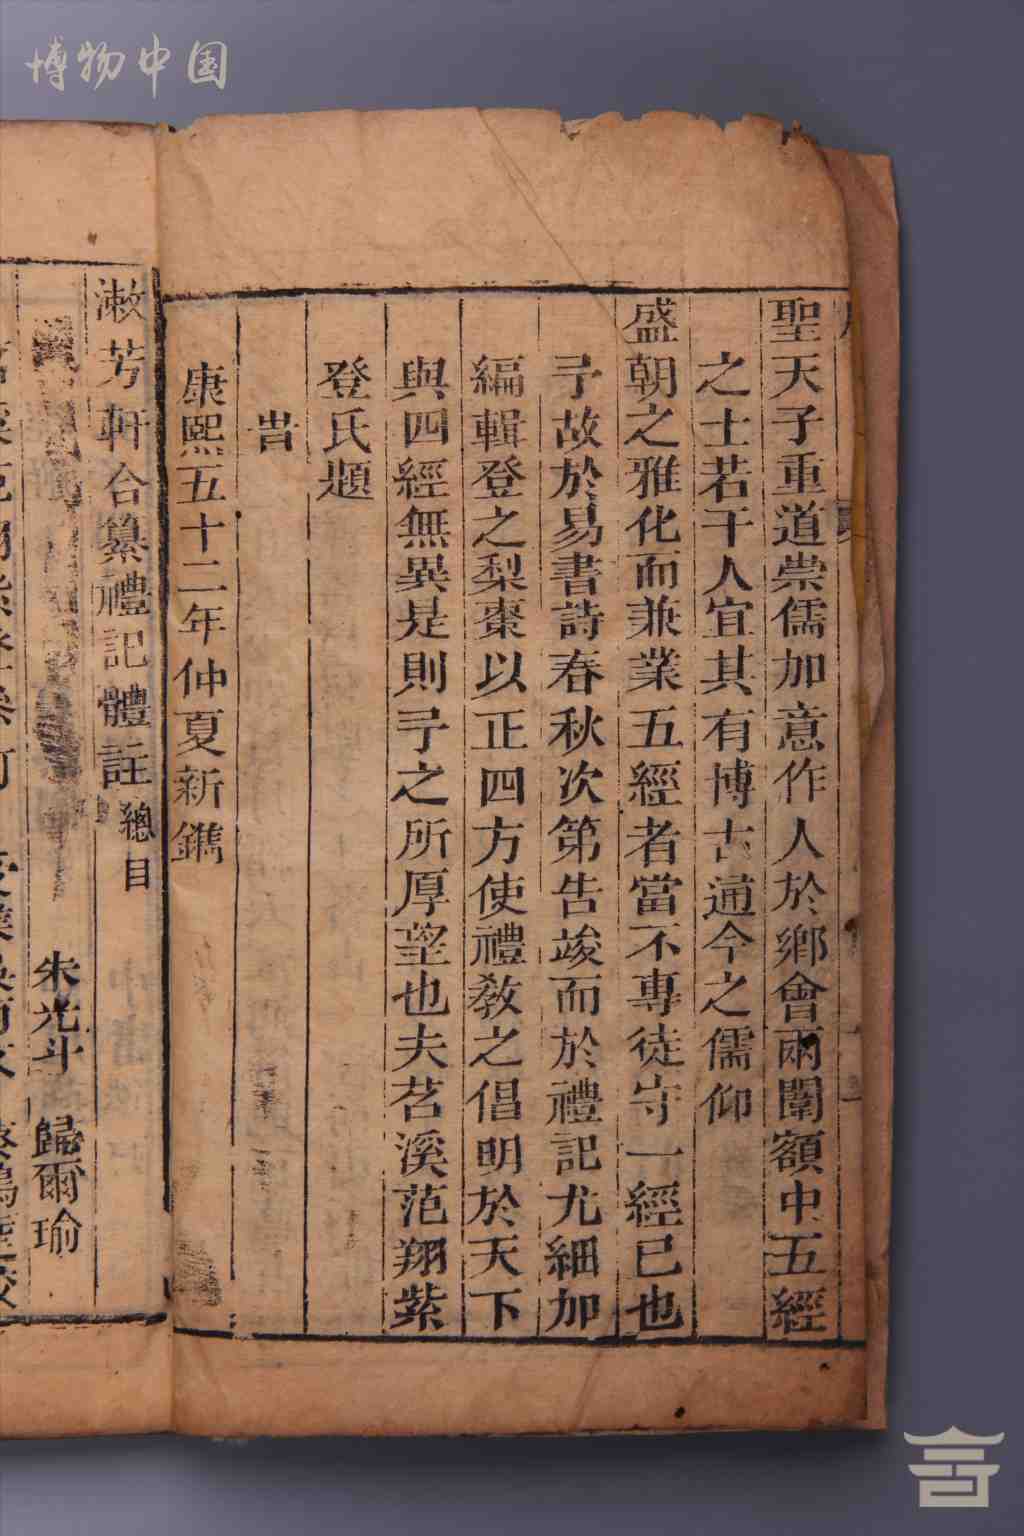 博物中国
聖天子重道崇儒加意作人於鄉會兩闈額中五經
之士若干人宜其有博古通今之儒仰
盛朝之雅化而兼業五經者當不專徒守一經已也
予故於易書詩春秋次第告竣而於禮記尤細加
編輯登之梨棗以正四方使禮教之倡明於天下
與四經無異是則予之所厚望也夫苕溪范翔紫
登氏題
旹
康熙五十二年仲夏新鐫
漱芳軒合纂禮記體註總目
朱光斗 歸爾瑜